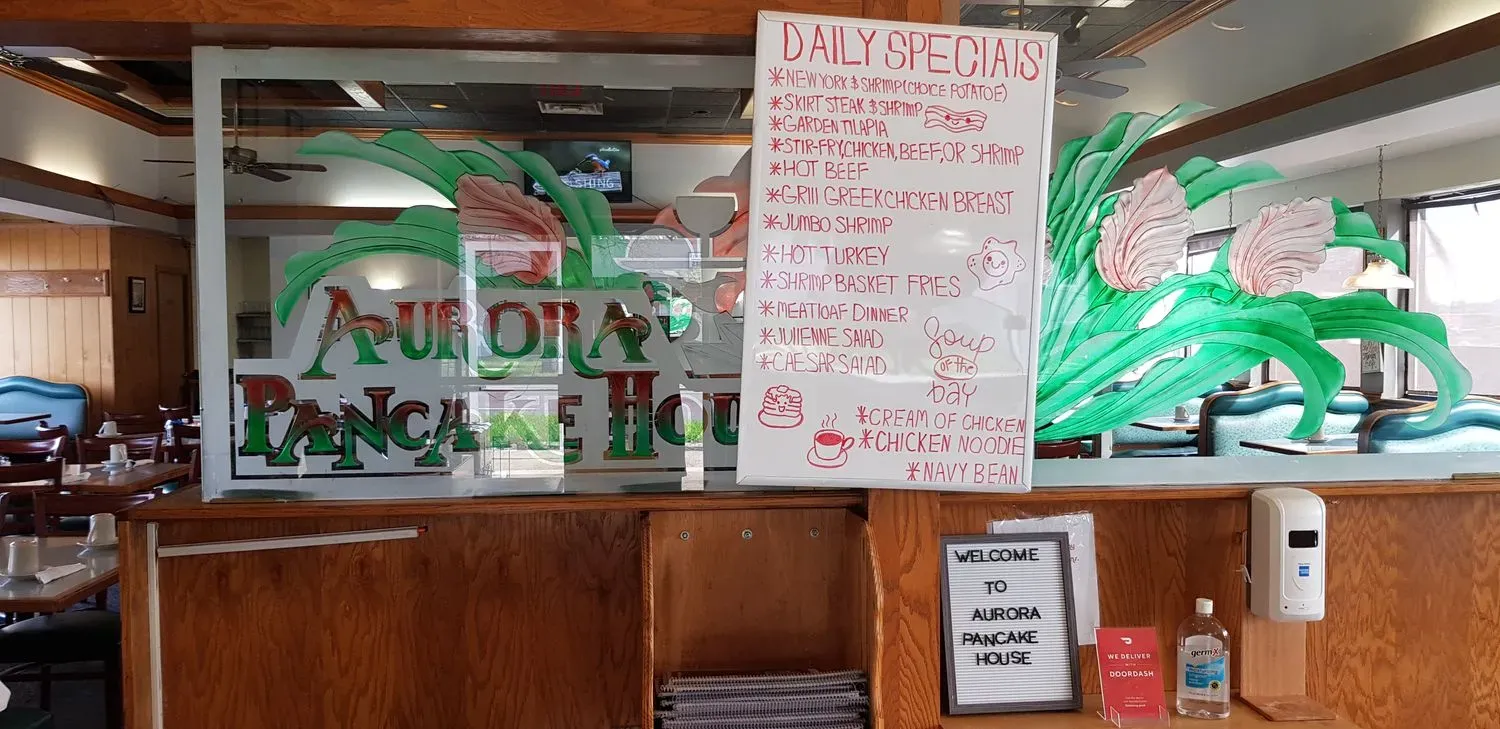 DAILY SPECIALS
*NEW YORK & SHRIMP (CHOICE POTATOE)
*SKIRT STEAK & SHRIMP
*GARDEN TILAPIA
*STIR-FRY,CHICKEN, BEEF, OR SHRIMP
*HOT BEEF
*GRILL GREEK CHICKEN BREAST
*JUMBO SHRIMP
*HOT TURKEY
*SHRIMP BASKET FRIES
*MEATLOAF DINNER
*JULIENNE SALAD
*CAESAR SALAD
Soup
OF the
DAY
*CREAM OF CHICKEN
*CHICKEN NOODLE
*NAVY BEAN
AURORA
PANCAKE HOU
WELCOME
TO
AURORA
PANCAKE
HOUSE
WE DELIVER
WITH
DOORDASH
germ-X